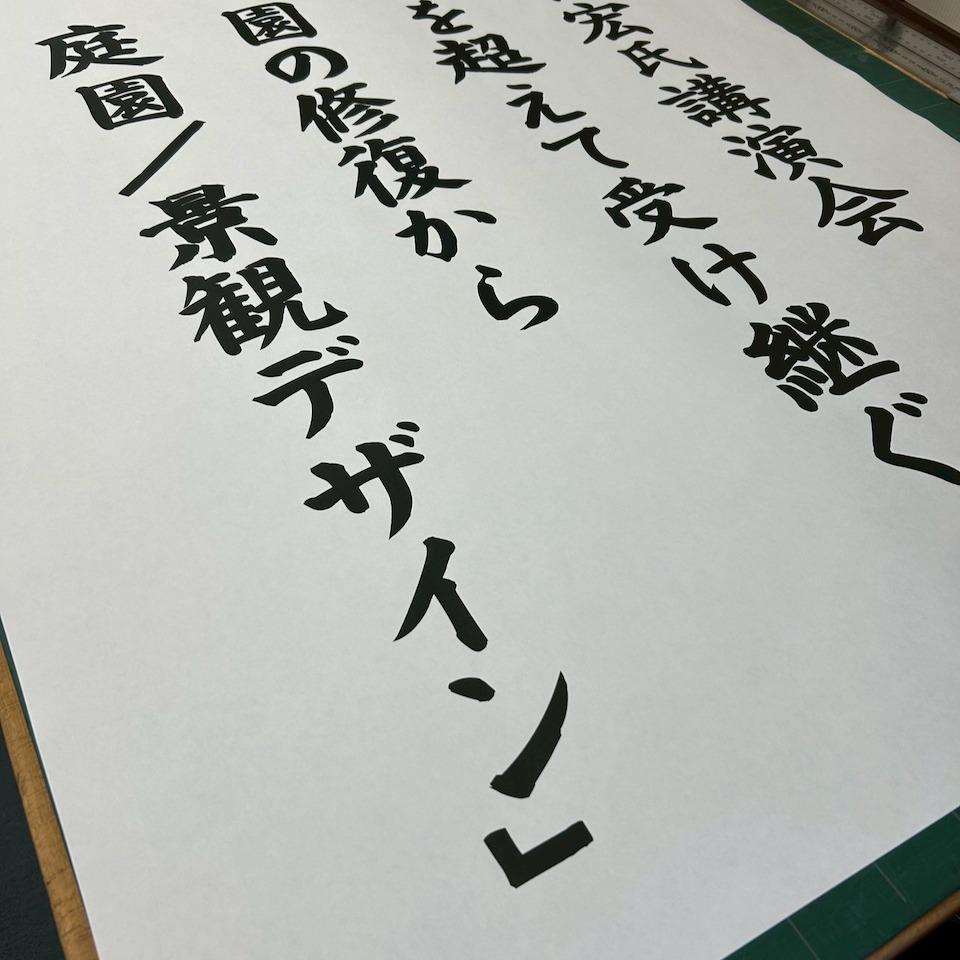 宏氏講演会
を超えて受け継ぐ
園の修復から
庭園／景観デザイン」